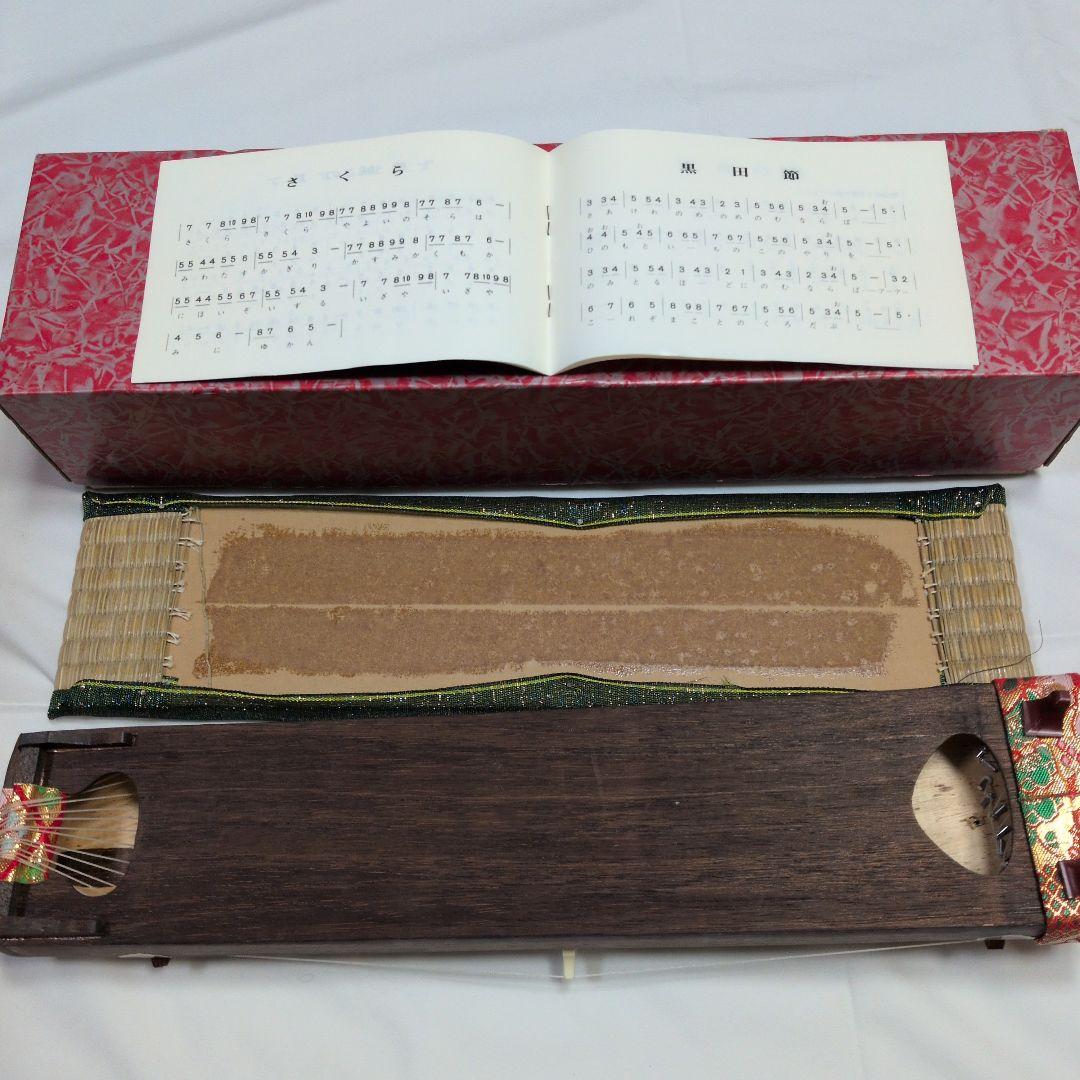 さくら
7 7 8 10 9 8 | 7 7 8 10 9 8 | 7 7 8 8 9 9 8 | 7 7 8 7 6 ー |
さくら さくら やよいの そらは
5 5 4 4 5 5 6 7 | 5 5 5 4 3 ー | 7 7 8 8 9 9 8 | 7 8 7 6 ー |
みわたす かぎり かすみか くもか
5 5 4 4 5 5 6 7 | 5 5 5 4 3 ー | 7 7 8 10 9 8 | 7 7 8 10 9 8 |
にほいぞ いずる いざや いざや
4 5 6 ー | 8 7 6 5 ー |
みに ゆかん
黒田節
3 3 4 | 5 5 4 | 3 4 3 | 2 3 | 5 5 6 | 5 3 4 | 5 ー | 5 ・ |
さけわ のめのめ のむならば
4 4 | 5 5 4 | 5 ー | 6 5 | 6 7 | 5 5 6 | 5 3 4 | 5 ー | 5 ・ |
ひのもといちの このやりを
3 3 4 | 5 5 4 | 3 4 3 | 2 1 | 3 4 3 | 2 3 4 | 5 ー | 3 2 |
のみとるほどに のむならば
6 7 | 6 5 | 8 9 8 | 6 7 | 5 5 6 | 5 3 4 | 5 ー | 5 ・ |
こーれぞまことの くろだぶし